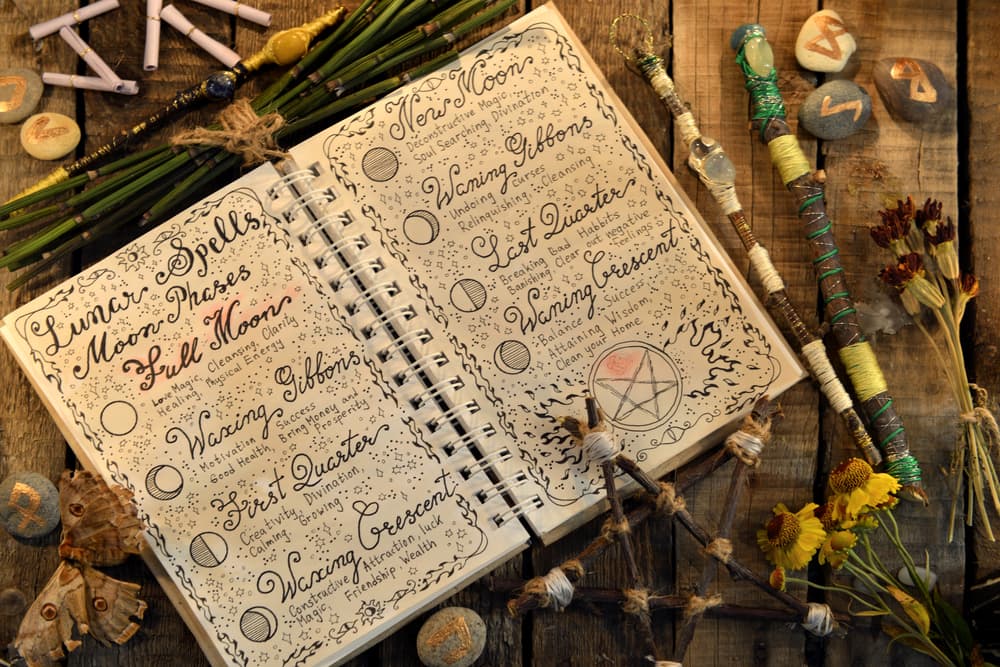 Lunar Spells
Moon Phases
Full Moon
Love Magic, Cleansing,
Healing, Physical Energy Clarity
Waxing Gibbons
Motivation Success
Good Health, Bring Money and
Prosperity
First Quarter
Creativity Divination,
Calming Growing
Waxing Crescent
Constructive Attraction luck
Magic, Friendship Wealth
New Moon
Deconstructive Magic
Soul Searching, Divination
Waning Gibbons
Undoing Curses
Relinquishing Cleansing
Last Quarter
Breaking Bad Habits
Banishing Clear out negative
feelings
Waning Crescent
Balance Success
Attaining Wisdom,
Clean your Home